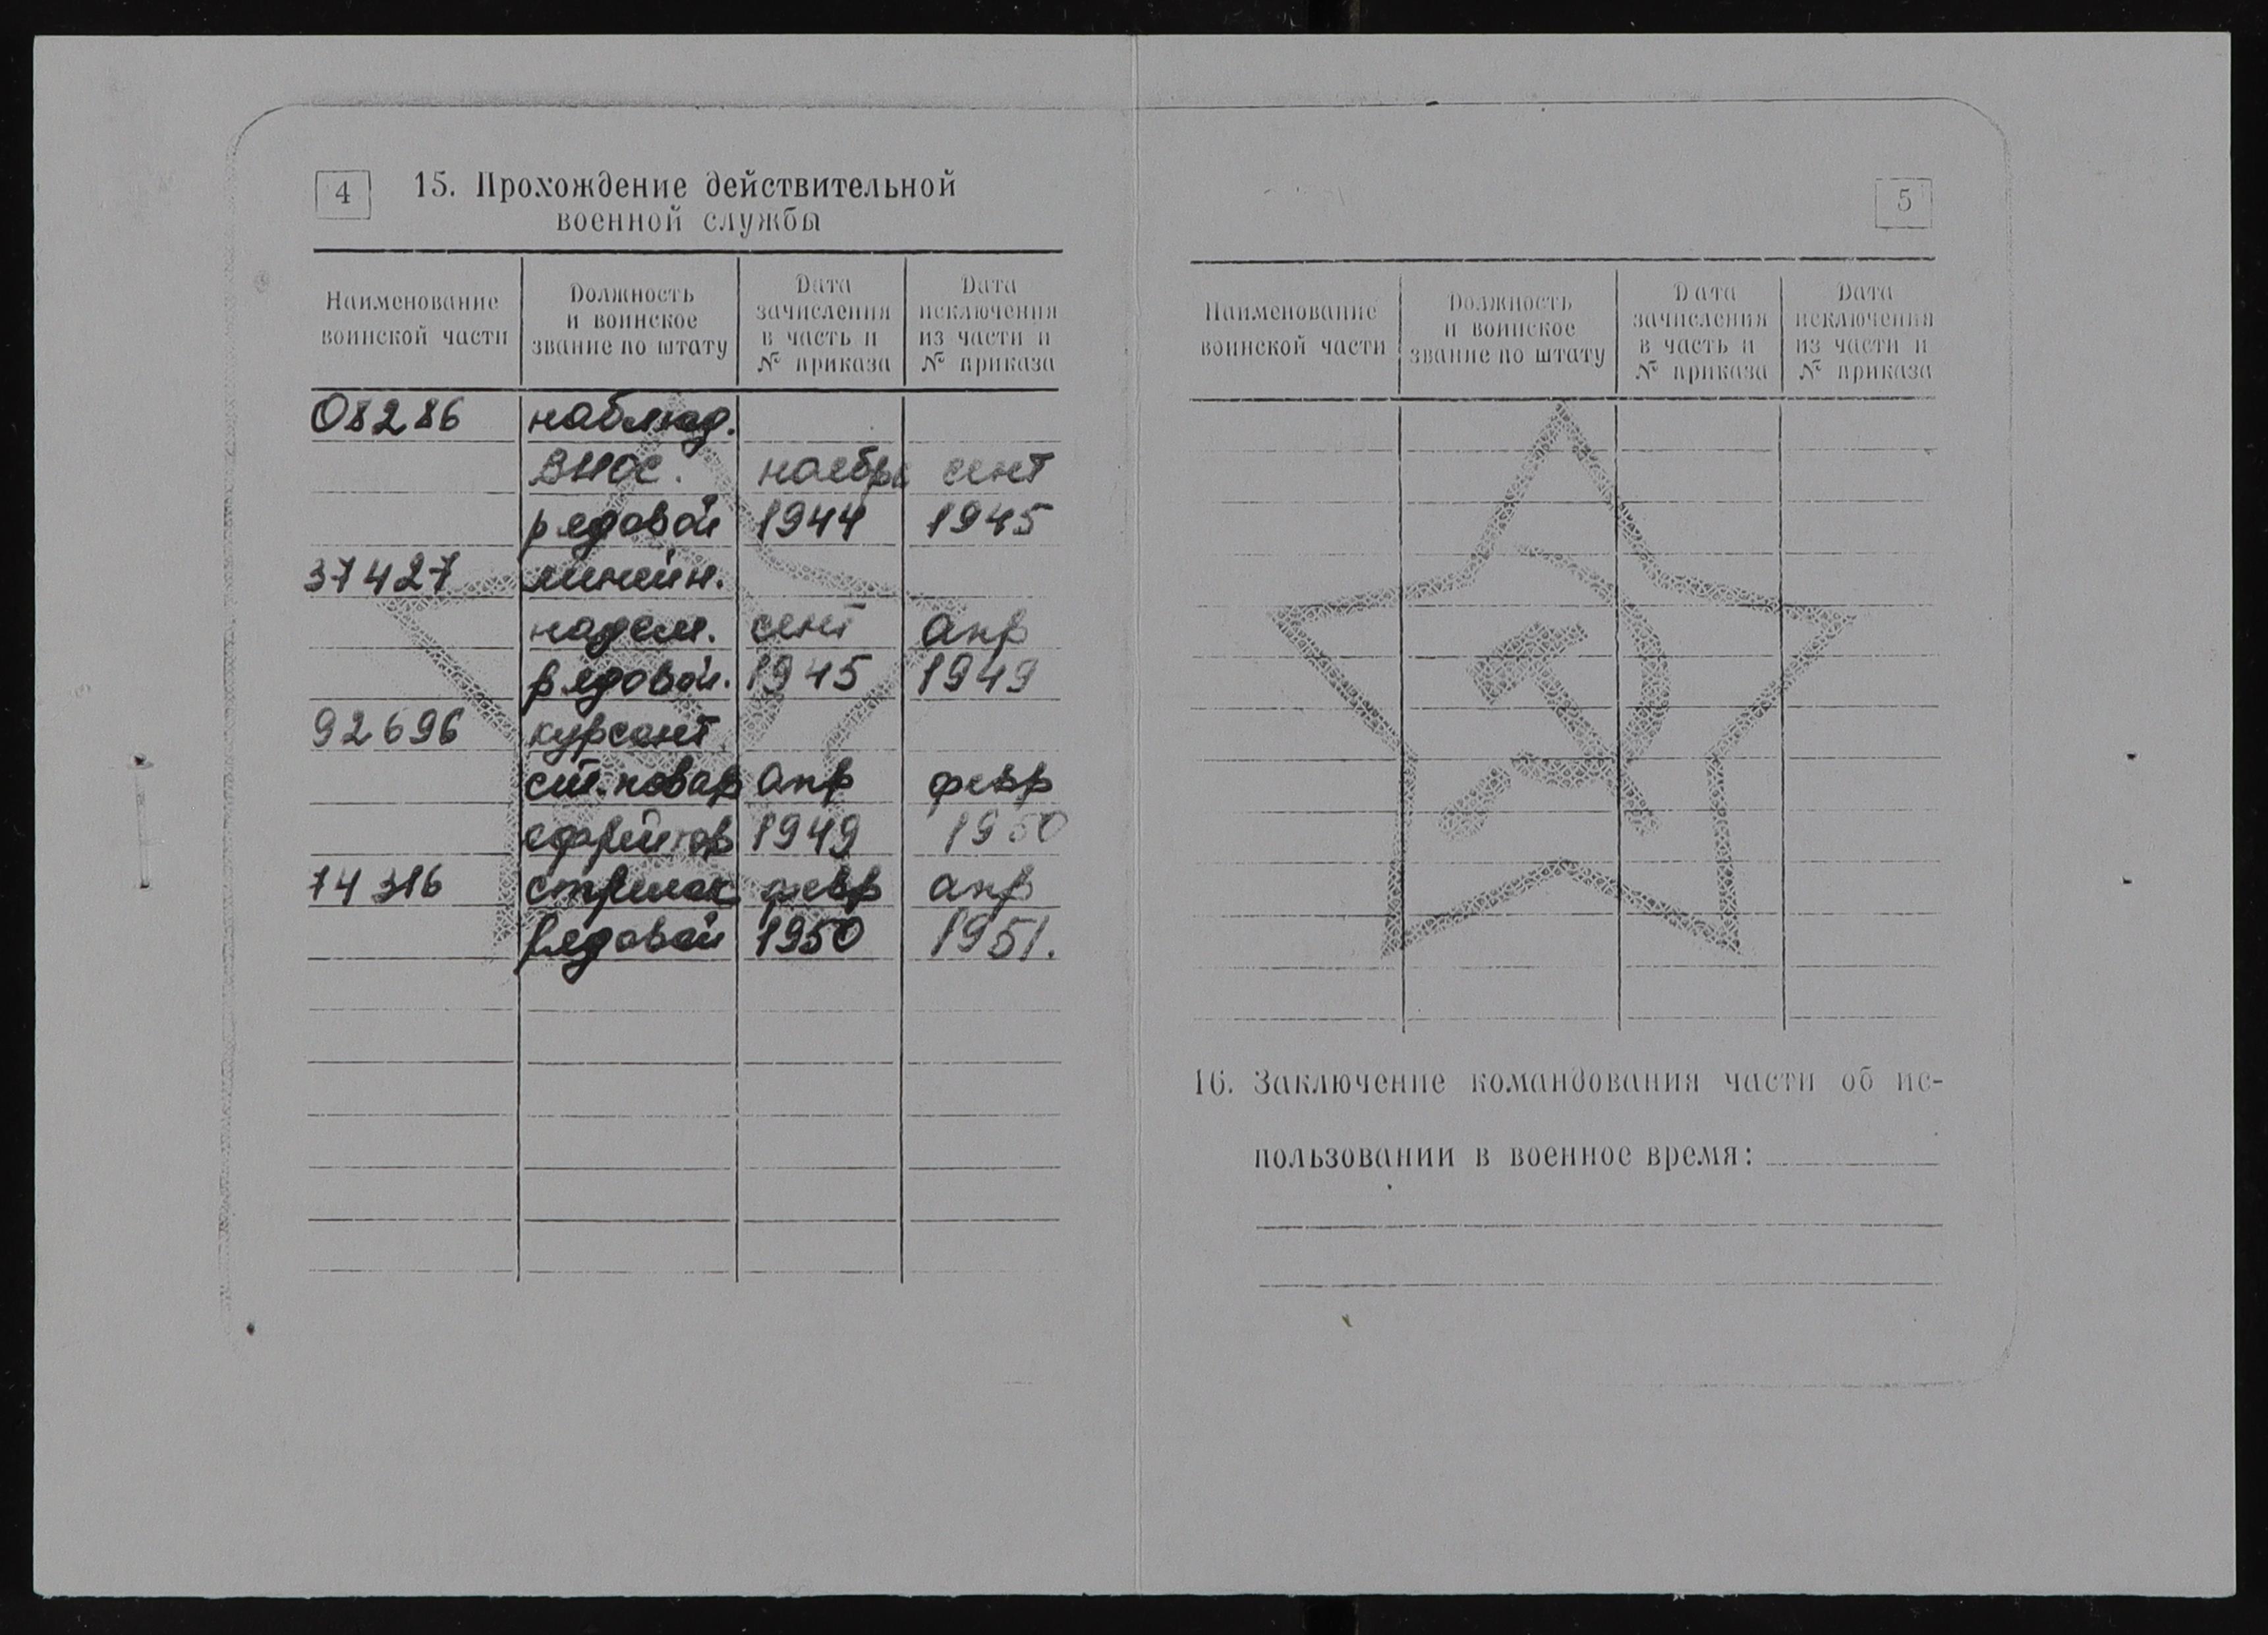 4
15. Прохождение действительной
военной службы
Наименование
воинской части
Должность
и воинское
звание по штату
Дата
зачисления
в часть и
№ приказа
Дата
исключения
из части и
№ приказа
08286 наблюд.
ВНОС. ноябрь сент
рядовой 1944 1945
37427 линейн.
надсм. сент апр
рядовой. 1945 1949
92696 курсант
ст. повар апр февр
ефрейтор 1949 1950
74316 стрелок февр апр
рядовой 1950 1951.
5
Наименование
воинской части
Должность
и воинское
звание по штату
Дата
зачисления
в часть и
№ приказа
Дата
исключения
из части и
№ приказа
16. Заключение командования части об ис-
пользовании в военное время: